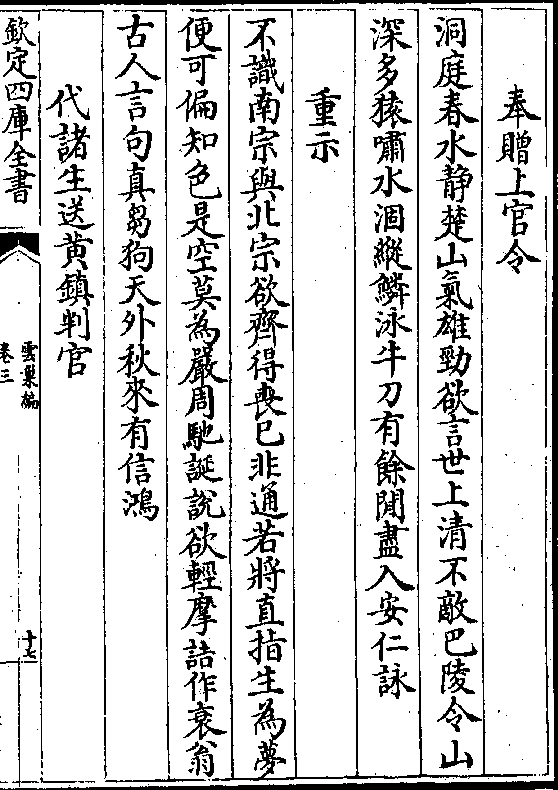 奉贈上官令
洞庭春水静楚山氣雄勁欲言世上清不敵巴陵令山
深多猿嘯水涸縱鱗泳牛刀有餘閒盡入安仁詠
重示
不識南宗與北宗欲齊得喪已非通若將直指生為夢
便可偏知色是空莫為嚴周馳誕說欲輕摩詰作衰翁
古人言句真芻狗天外秋來有信鴻
代諸生送黄鎮判官
欽定四庫全書
雲巢編
卷三
十七